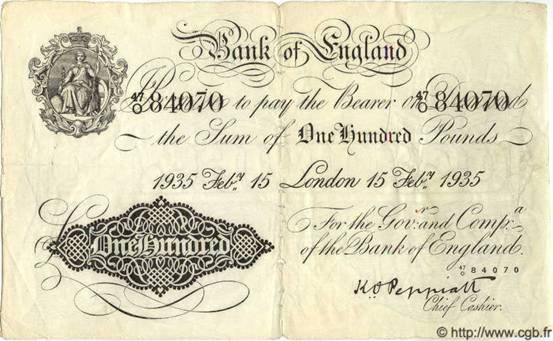 Bank of England
47/O 84070 to pay the Bearer on Demand 47/O 84070
the Sum of One Hundred Pounds
1935 Feby. 15 London 15 Feby. 1935
For the Govr. and Compa.
of the Bank of England.
One Hundred
47/O 84070
K O Peppiatt
Chief Cashier.
© http://www.cgb.fr